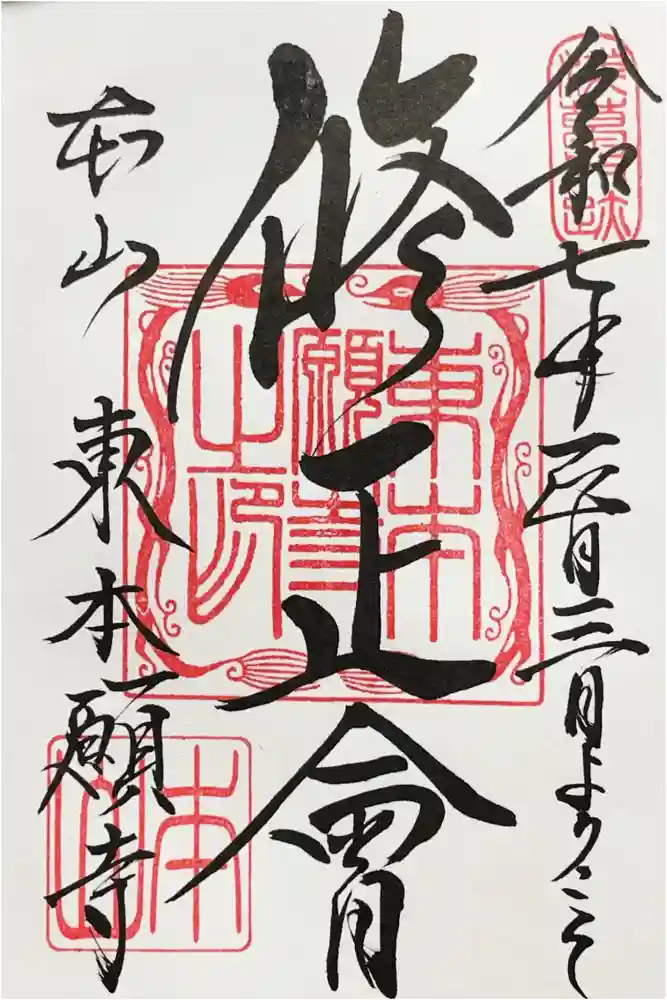 令和七年正月三日ようこそ
修正會
本山 東本願寺
東本
願寺
之印
本山